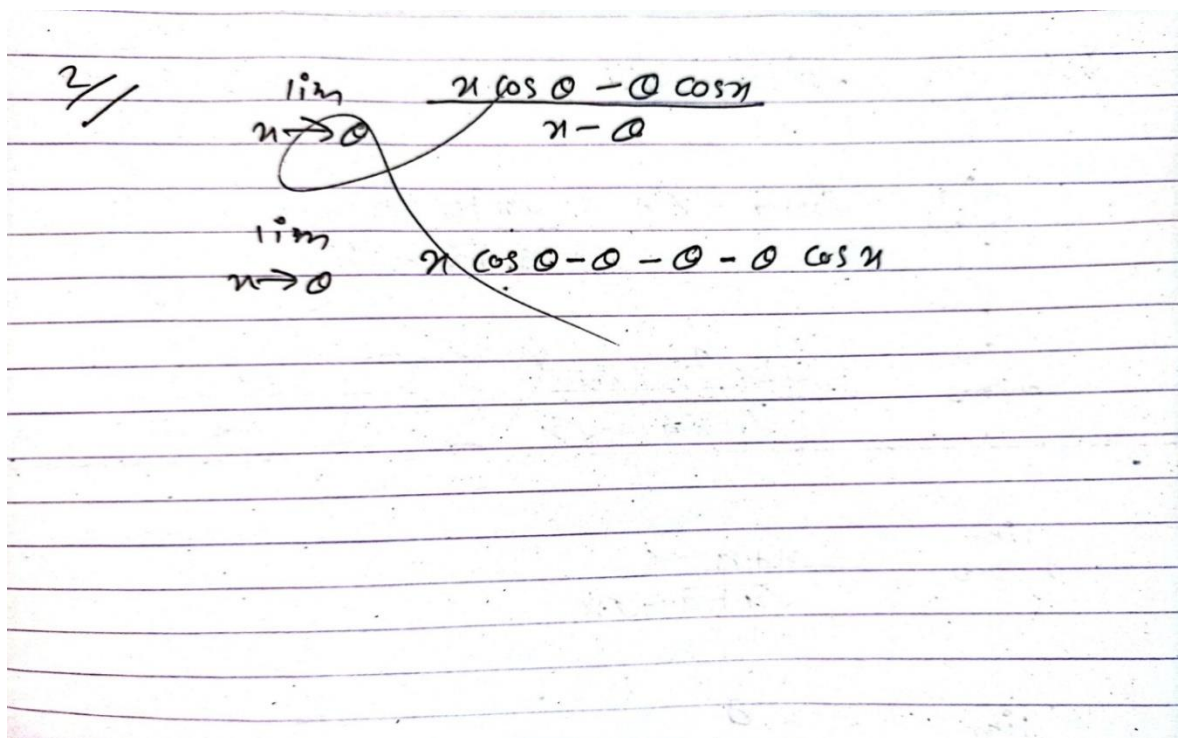 2//
lim x→θ (x cos θ − θ cos x) / (x − θ)
lim x→θ x cos θ − θ − θ − θ cos x